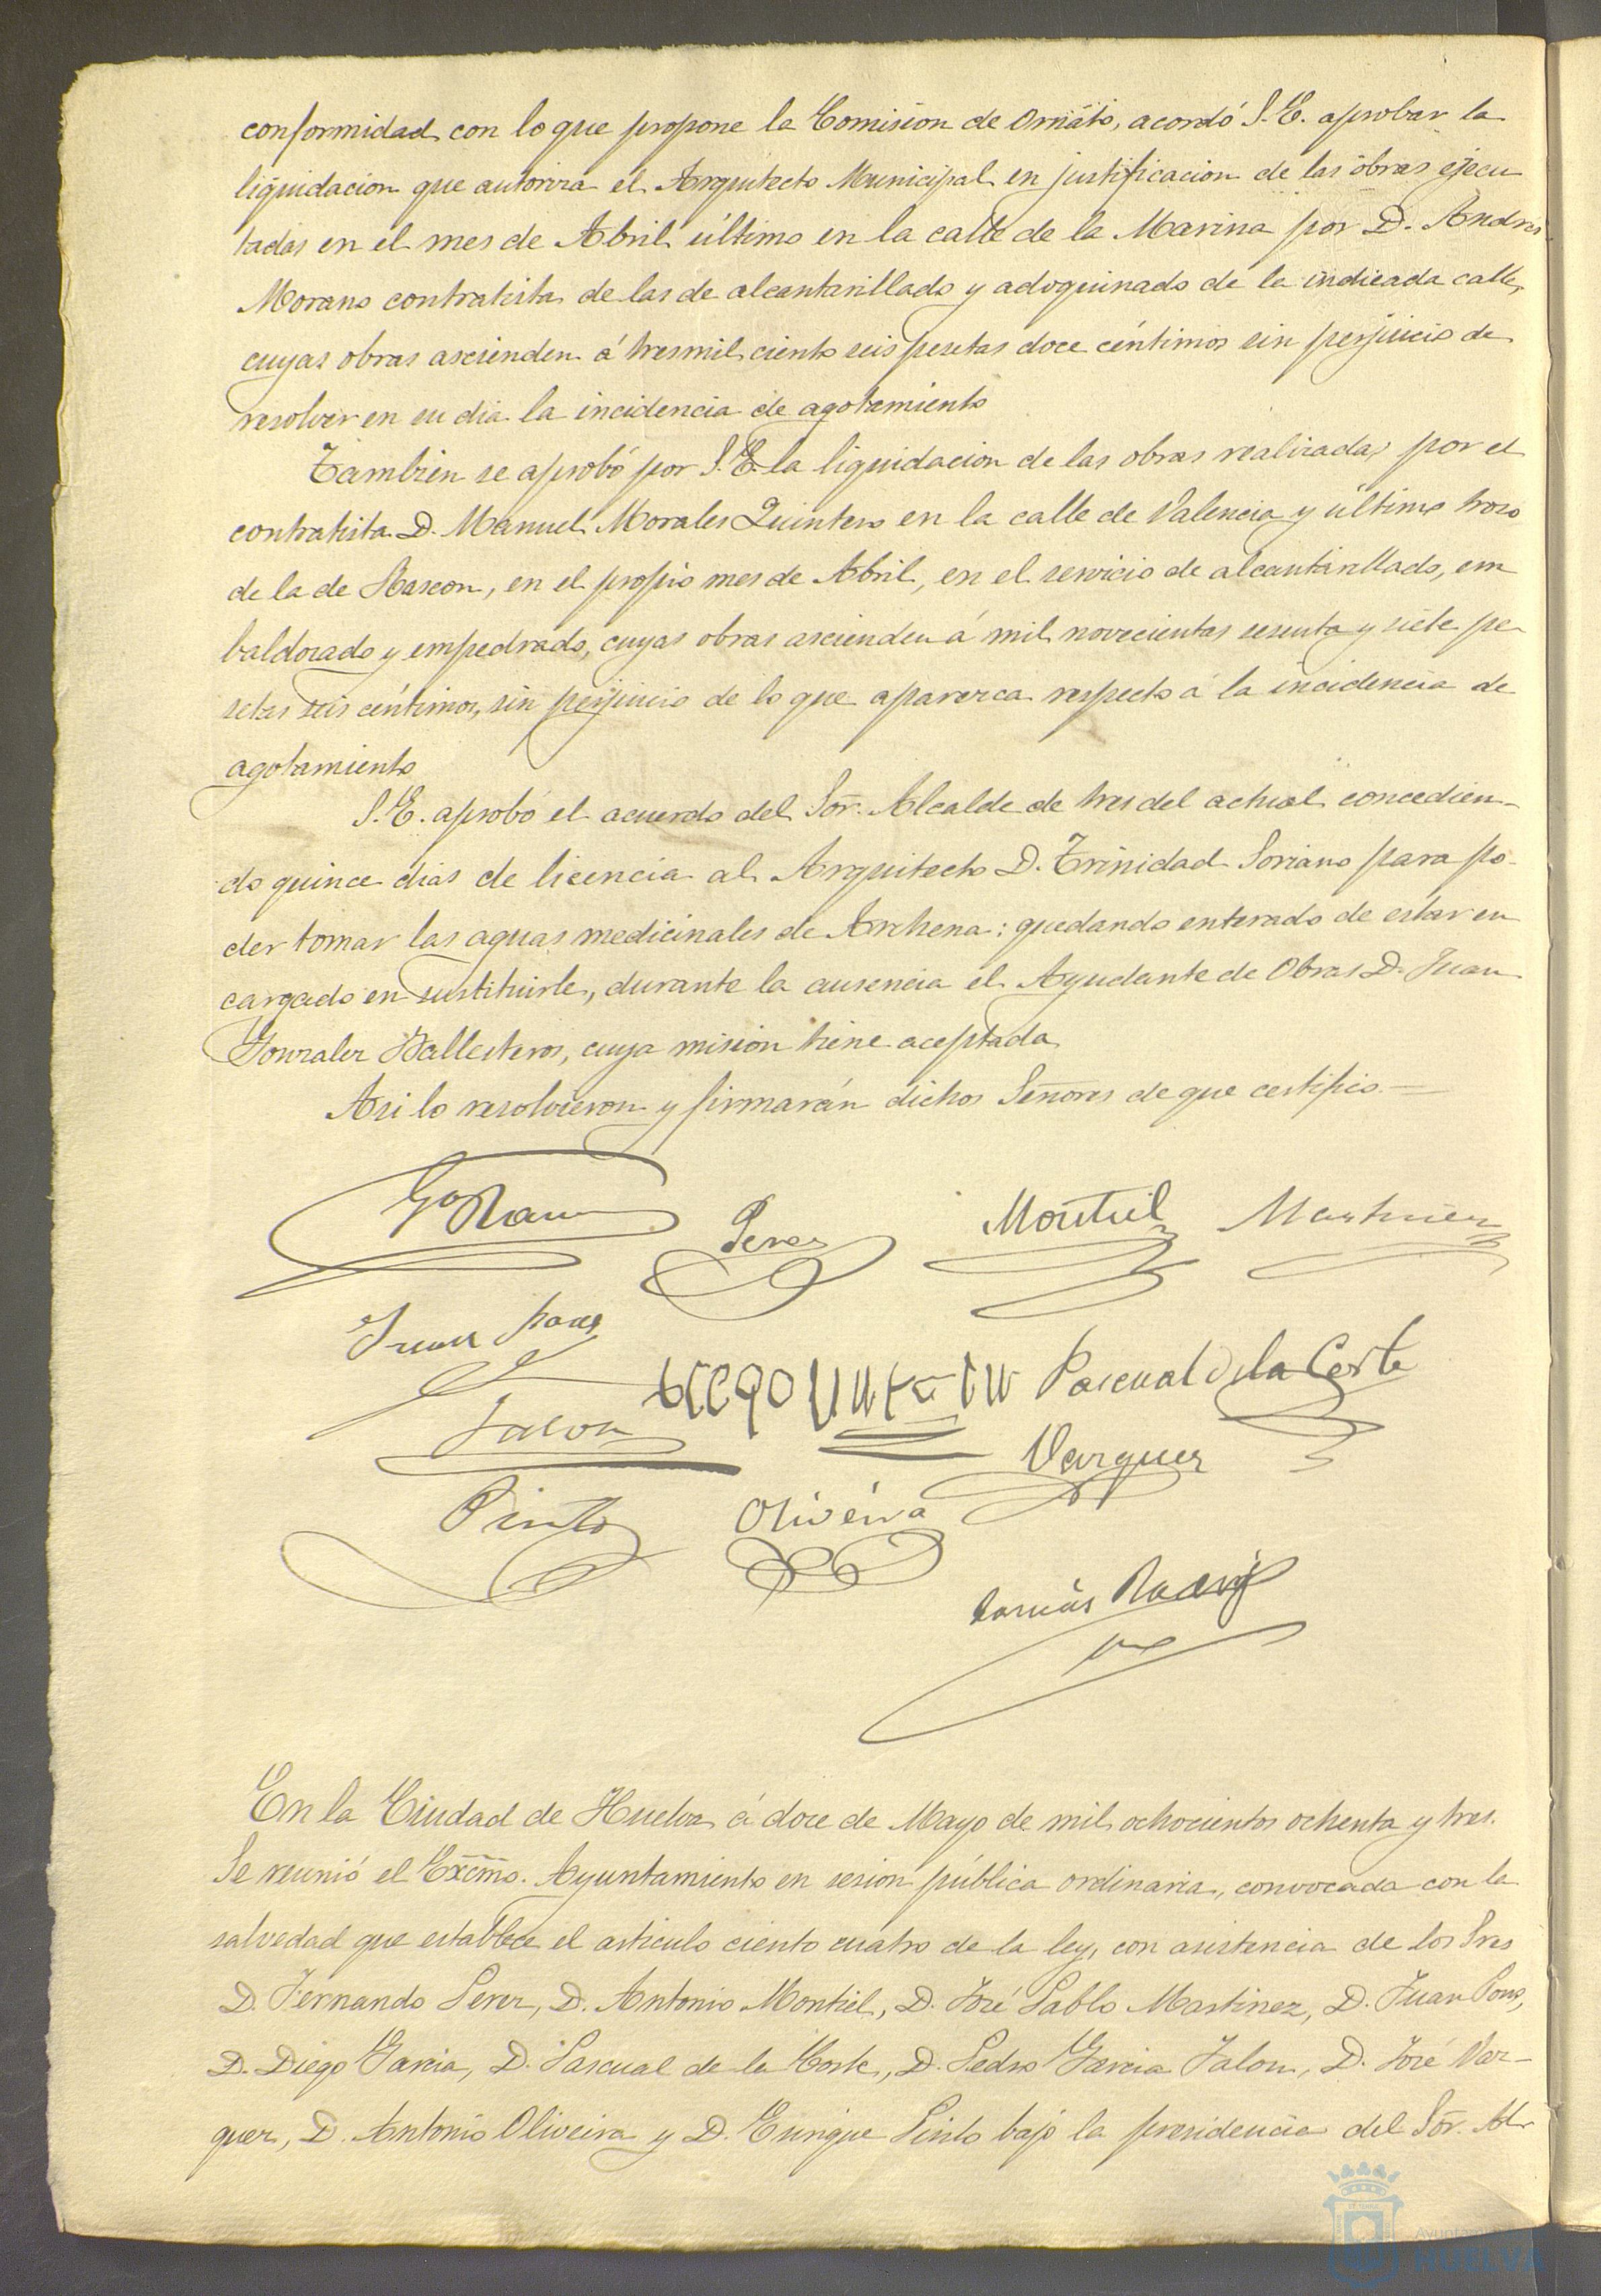 conformidad con lo que propone la Comision de Ornato, acordó S.E. aprobar la
liquidacion que autoriza el Arquitecto Municipal en justificacion de las obras ejecu
tadas en el mes de Abril último en la calle de la Marina por D. Andrés
Morano contratista de las de alcantarillado y adoquinado de la indicada calle,
cuyas obras ascienden á tres mil ciento seis pesetas doce céntimos sin perjuicio de
resolver en su dia la incidencia de agotamiento
Tambien se aprobó por S.E. la liquidacion de las obras realizadas por el
contratista D. Manuel Morales Quintero en la calle de Valencia y último trozo
de la de Rascon, en el propio mes de Abril, en el servicio de alcantarillado, em
baldosado y empedrado, cuyas obras ascienden á mil novecientas sesenta y siete pe
setas seis céntimos, sin perjuicio de lo que aparezca respecto á la incidencia de
agotamiento
S.E. aprobó el acuerdo del Sor. Alcalde de tres del actual concedien-
do quince dias de licencia al Arquitecto D. Trinidad Soriano para po-
der tomar las aguas medicinales de Archena: quedando enterado de estar en
cargado en sustituirle, durante la ausencia el Ayudante de Obras D. Juan
Gonzalez Ballesteros, cuya mision tiene aceptada
Asi lo resolvieron y firmarán dichos Señores de que certifico.—
Perez Montiel Martinez
Juan Pons
Pascual de la Corte
Jalon
Vazquez
Pinto Oliveira
Tomás
En la Ciudad de Huelva á doce de Mayo de mil ochocientos ochenta y tres.
Se reunió el Excmo. Ayuntamiento en sesion pública ordinaria, convocada con la
salvedad que establece el articulo ciento cuatro de la ley, con asistencia de los Sres
D. Fernando Perez, D. Antonio Montiel, D. José Pablo Martinez, D. Juan Pons,
D. Diego Garcia, D. Pascual de la Corte, D. Pedro Garcia Jalon, D. José Vaz-
quez, D. Antonio Oliveira y D. Enrique Pinto bajo la presidencia del Sor. Al-
HUELVA